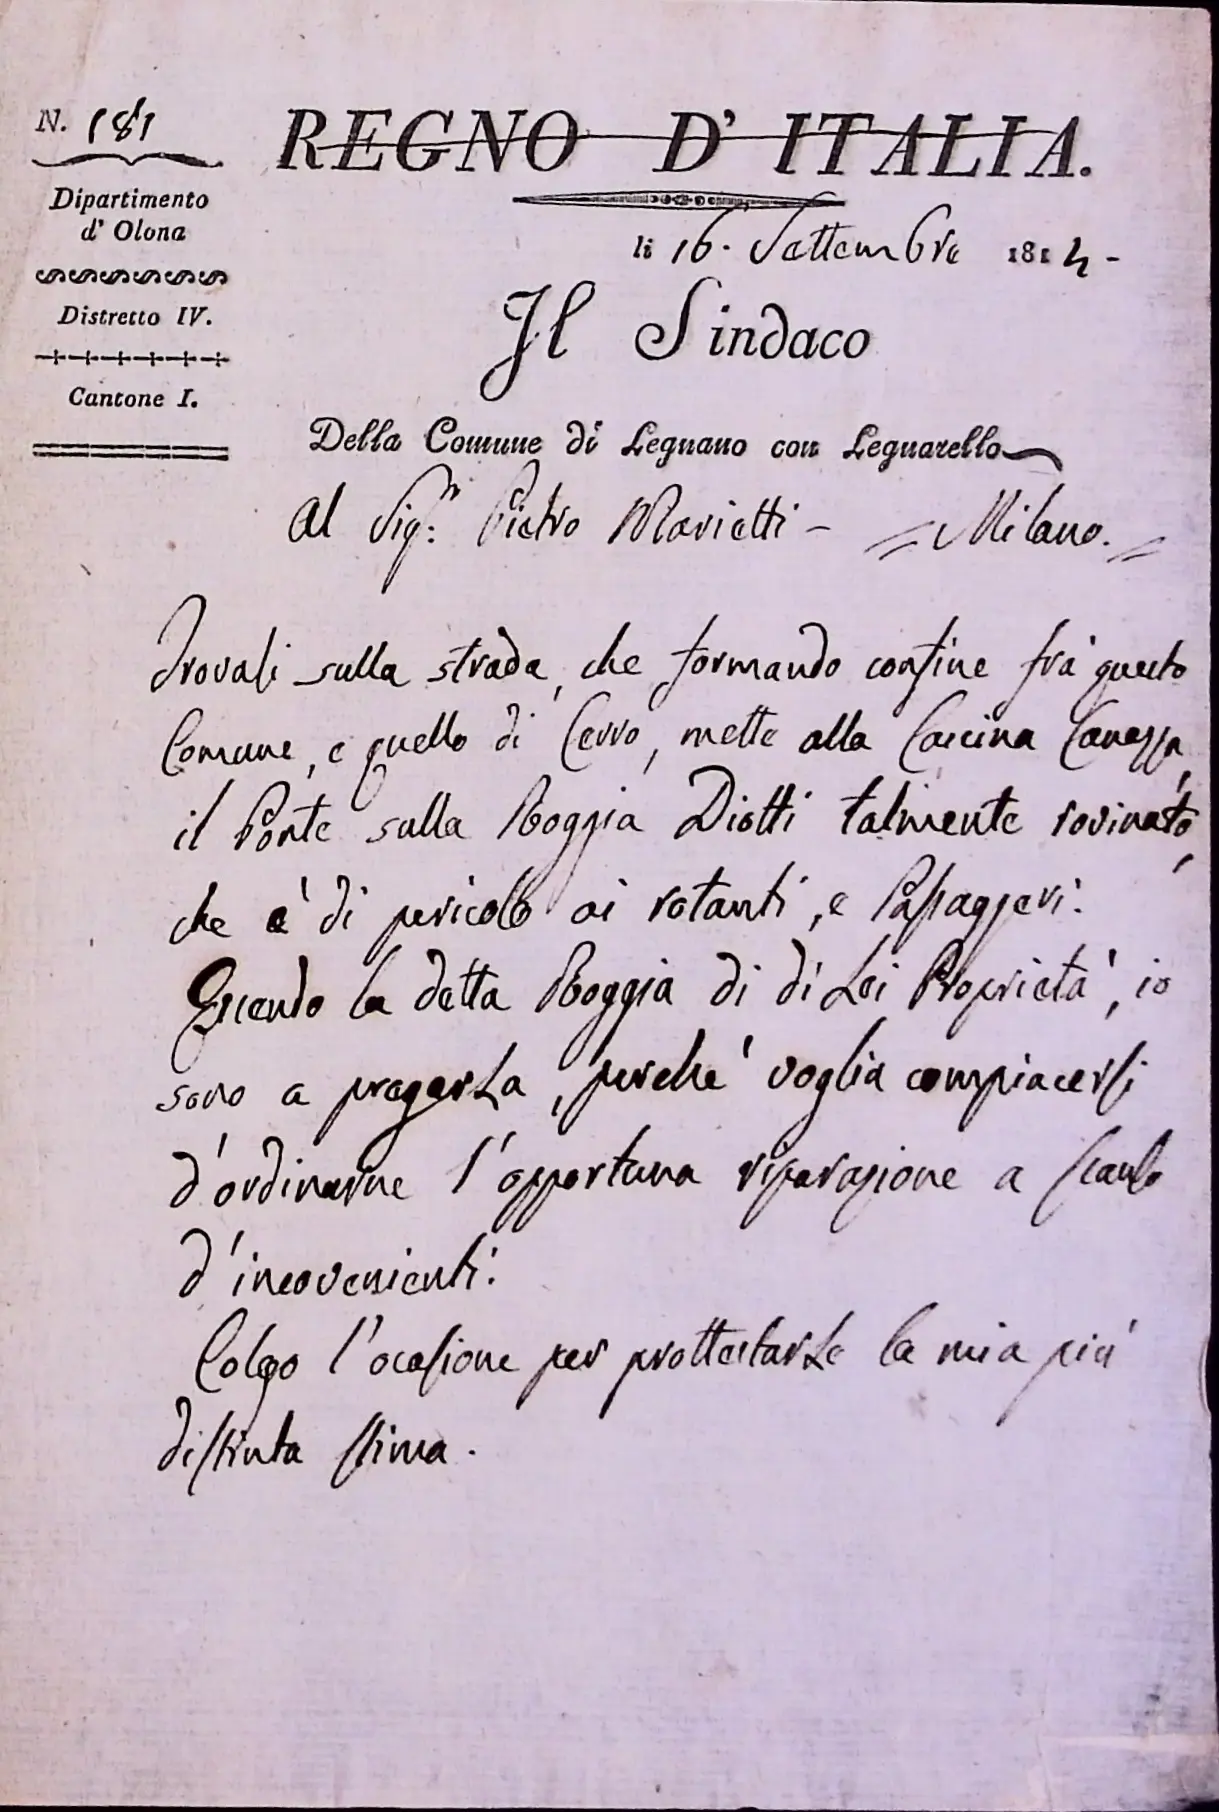 N. 181
REGNO D' ITALIA.
Dipartimento
d' Olona
Distretto IV.
Cantone I.
li 16. Settembre 1814 -
Il Sindaco
Della Comune di Legnano con Legnarello
Al Sig.r Pietro Marietti - = Milano. =
Trovasi sulla strada, che formando confine frà questo
Comune, e quello di Cerro, mette alla Cascina Canazza,
il Ponte sulla Roggia Diotti talmente rovinato,
che è di pericolo ai rotanti, e Passaggeri.
Essendo la detta Roggia di di Lei Proprietà, io
sono a pregarLa, perchè voglia compiacersi
d'ordinarne l'opportuna riparazione a scanso
d'incovenienti.
Colgo l'ocasione per prottestarLe la mia più
distinta stima.